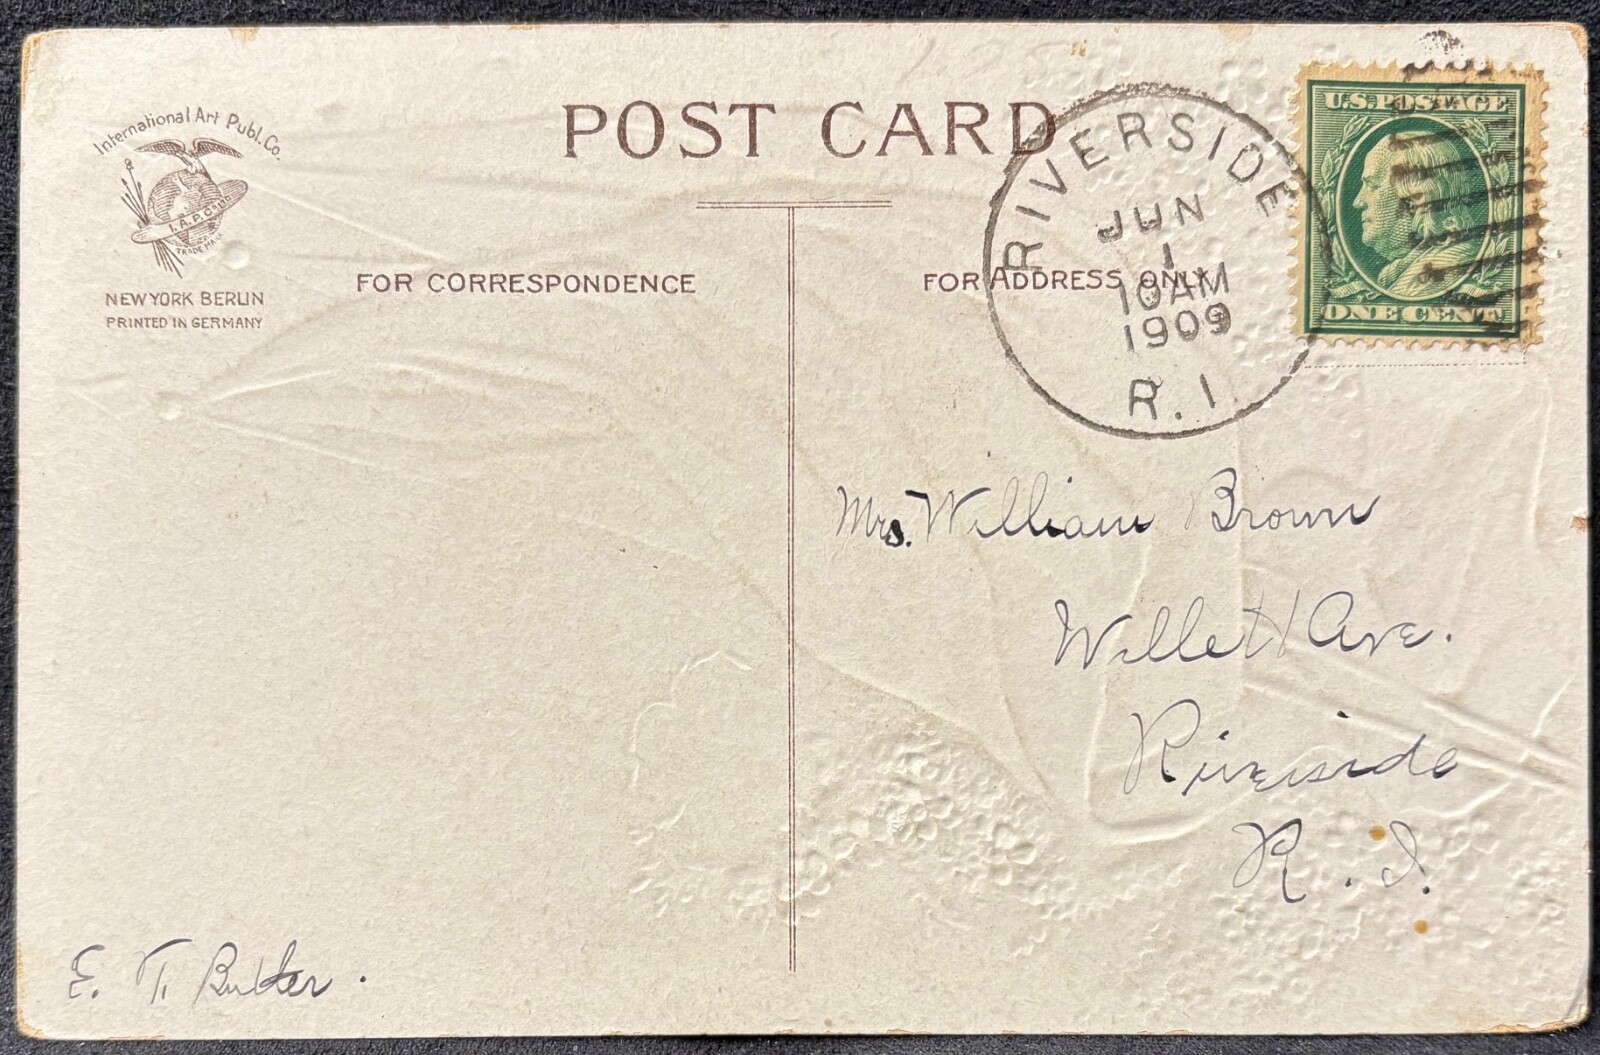 International Art Publ. Co.
I. A. P. Co.
TRADE MARK
NEW YORK BERLIN
PRINTED IN GERMANY
POST CARD
FOR CORRESPONDENCE
FOR ADDRESS ONLY
RIVERSIDE
JUN
1
10 AM
1909
R.I
U.S. POSTAGE
ONE CENT
Mrs. William Brown
Willett Ave.
Riverside
R. I.
E. T. Butter.